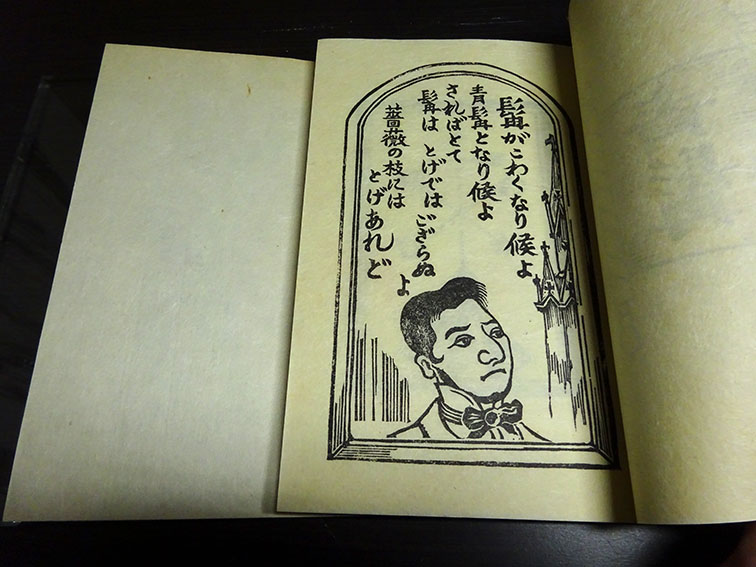 髯がこわくなり候よ
青髯となり候よ
さればとて
髯は とげでは ござらぬよ
薔薇の枝には
とげあれど